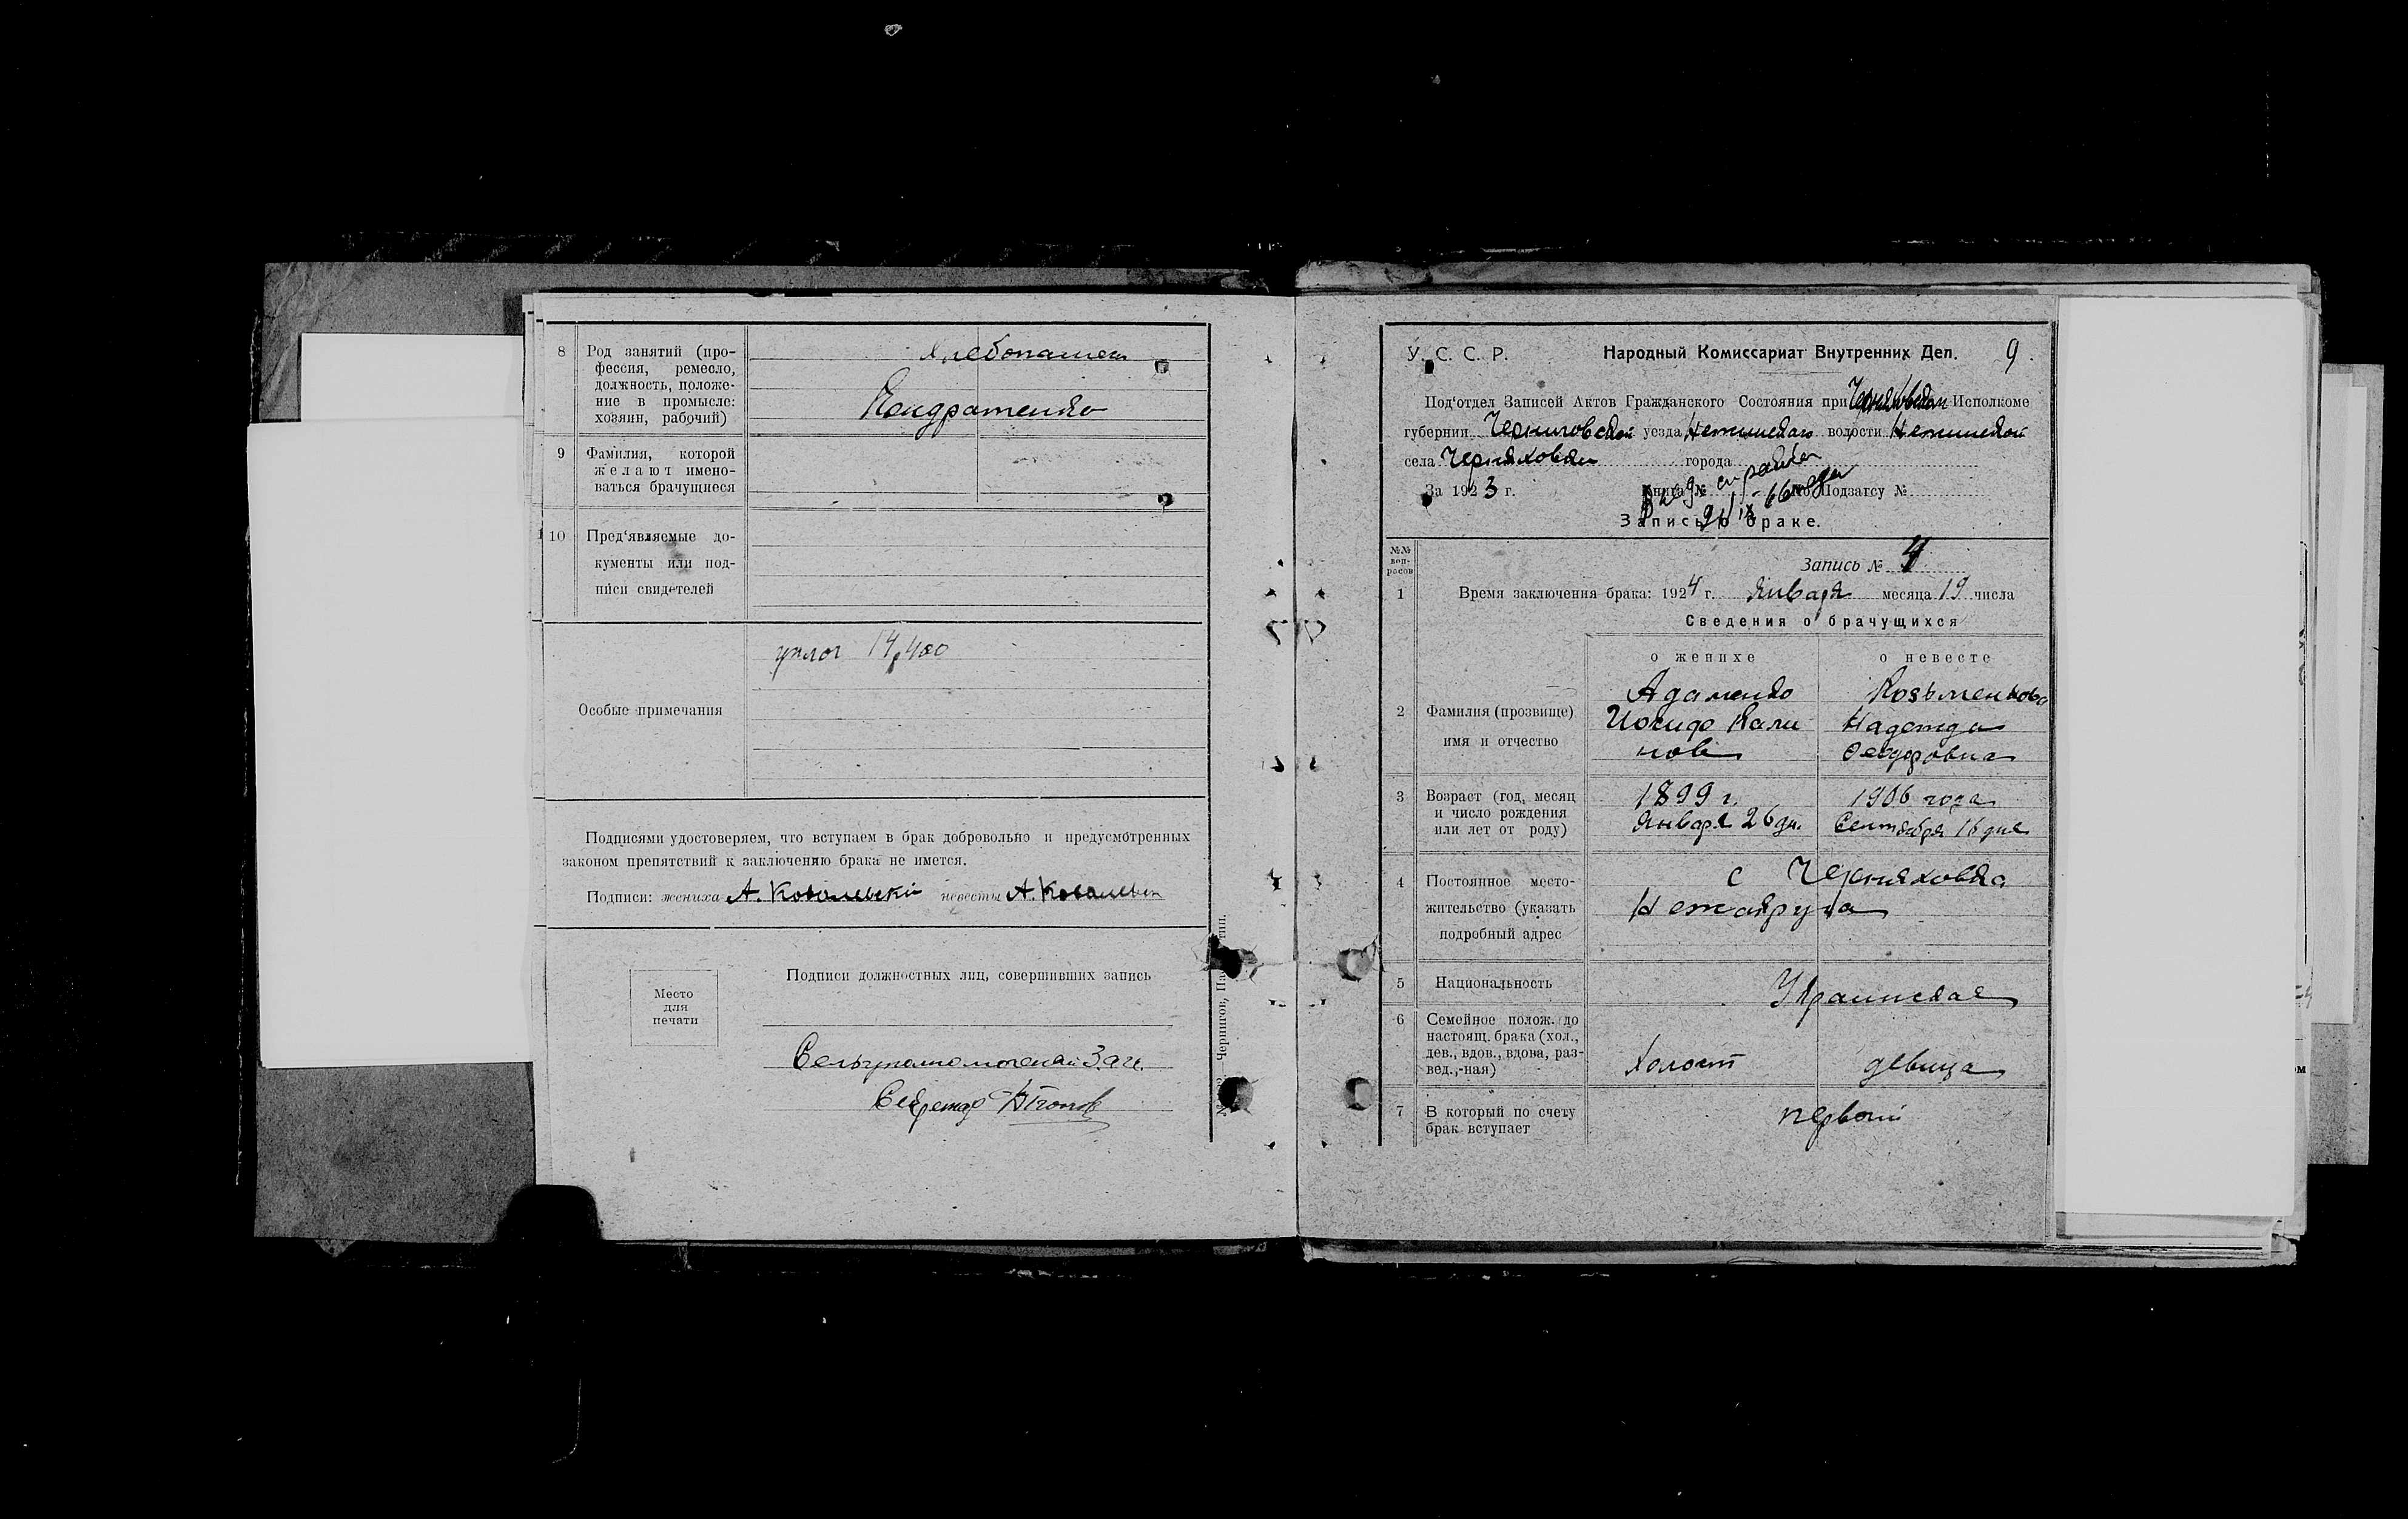 8 Род занятий (про-
фессия, ремесло,
должность, положе-
ние в промысле:
хозяин, рабочий)
Хлебопашец
Кондратенко
9 Фамилия, которой
желают имено-
ваться брачущиеся
10 Пред‘являемые до-
кументы или под-
писи свидетелей
Особые примечания
14,400
Подписями удостоверяем, что вступаем в брак добровольно и предусмотренных
законом препятствий к заключению брака не имется.
Подписи: жениха А. Ковальский невесты А.
Место
для
печати
Подписи должностных лиц, совершивших запись
Секретар
Чернигов,
У. С. С. Р. Народный Комиссариат Внутренних Дел. 9.
Под‘отдел Записей Актов Гражданского Состояния при Исполкоме
губернии Черниговской уезда Нежинскаго волости Нежинской
села Черняховки города
За 1923 г. Книга № По Подзагсу №
Запись о браке.
№№
воп-
росов
Запись № 4
1 Время заключения брака: 1924 г. Января месяца 19 числа
Сведения о брачущихся
о женихе о невесте
2 Фамилия (прозвище)
имя и отчество
Адаменко
Иосиф Кали
нов
Козьменкова
Надежда
Феодоровна
3 Возраст (год, месяц
и число рождения
или лет от роду)
1899 г.
Января 26 дн.
1906 года
Сентября 16 дня
4 Постоянное место-
жительство (указать
подробный адрес
с Черняховка
Неж округа
5 Национальность
Украинская
6 Семейное полож. до
настоящ. брака (хол.,
дев., вдов., вдова, раз-
вед.,-ная)
Холост девица
7 В который по счету
брак вступает
первый